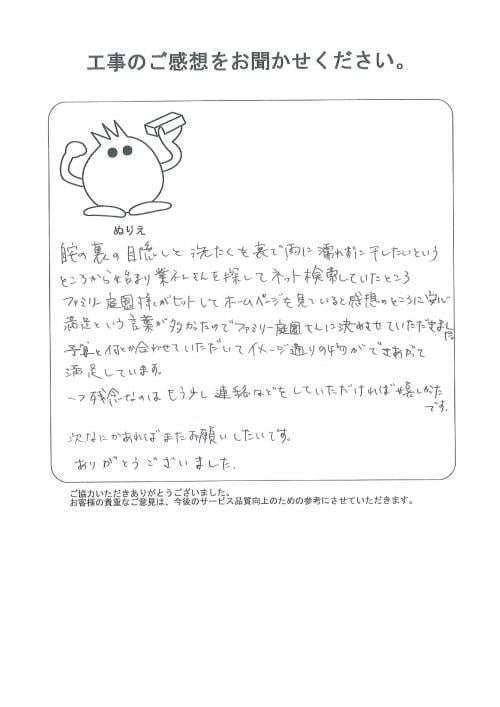 工事のご感想をお聞かせください。
ぬりえ
庭の裏の目隠しと洗たくを裏で雨に濡れずに干したいという
ところから始まり業者さんを探してネット検索していたところ
ファミリー庭園様がヒットしてホームページを見ていると感想のところに
満足という言葉が多かったのでファミリー庭園さんに決めさせていただきました
予算と何とか合わせていただいてイメージ通りの物ができあがって
満足しています。
一つ残念なのはもう少し連絡などをしていただければ嬉しかった
です。
次なにかあればまたお願いしたいです。
ありがとうございました。
ご協力いただきありがとうございました。
お客様の貴重なご意見は、今後のサービス品質向上のための参考にさせていただきます。